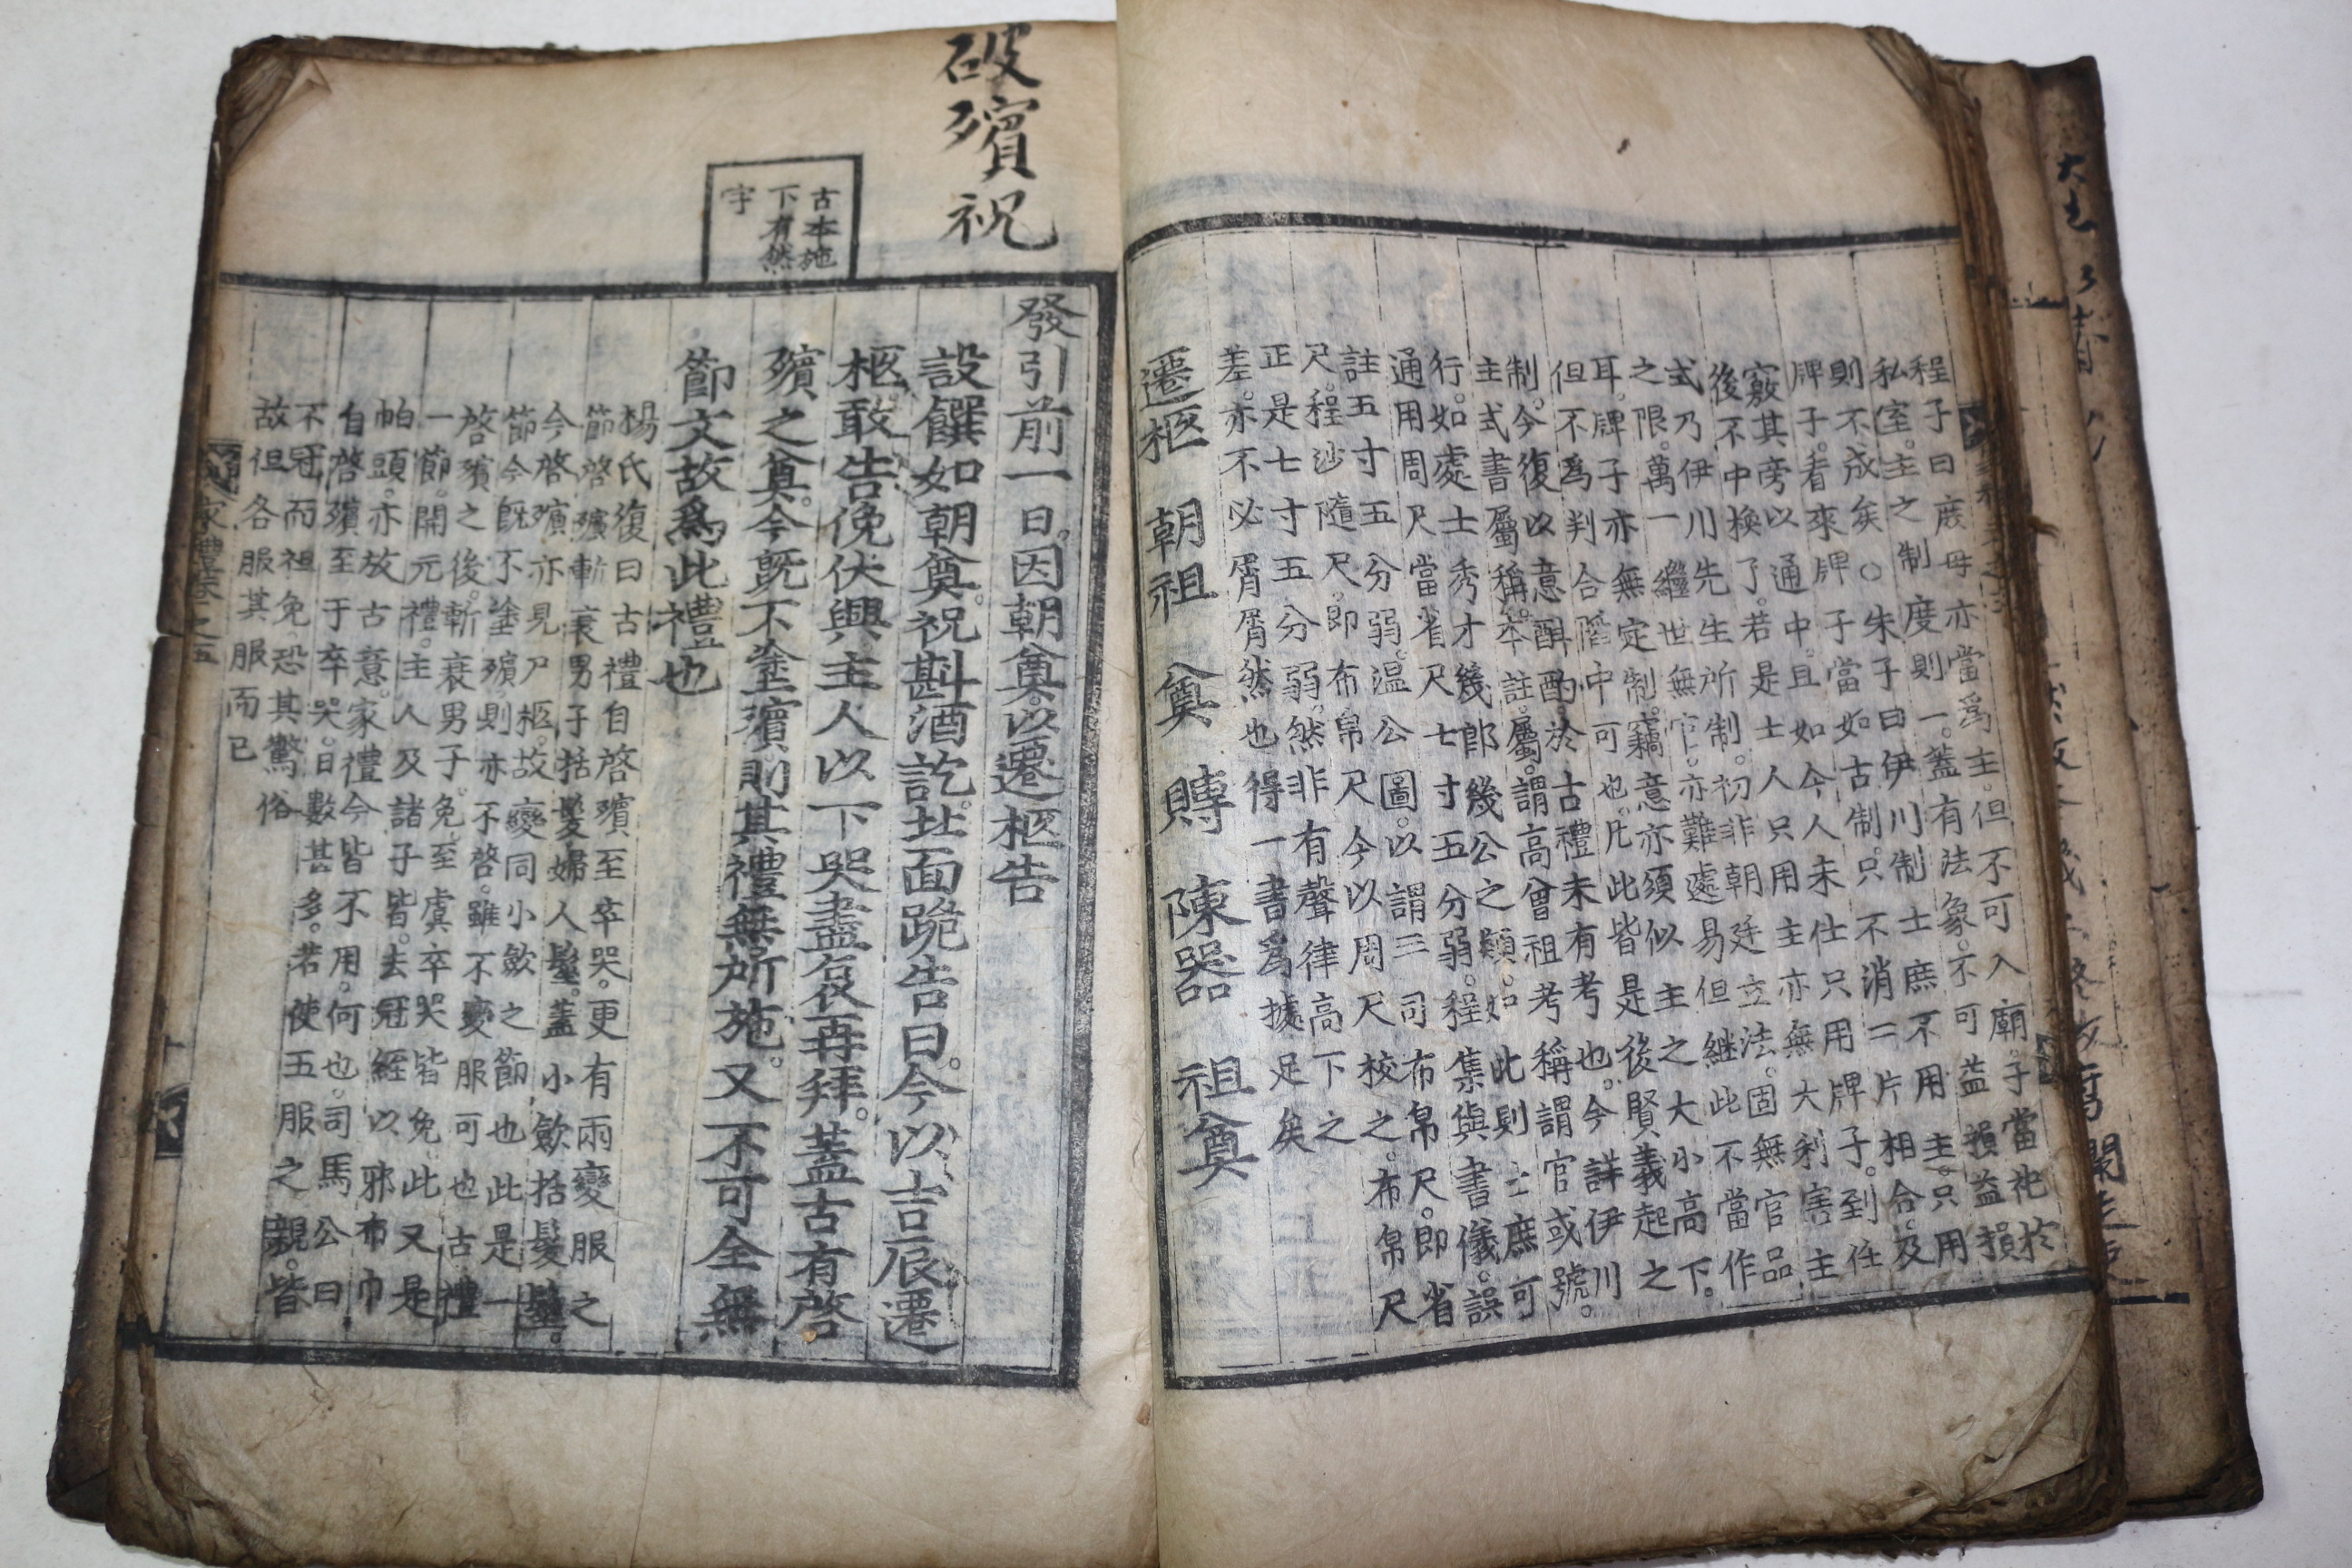 程子曰庶母亦當爲主。但不可入廟。子當祀於
私室。主之制度則一。蓋有法象。不可益損益損
則不成矣。○朱子曰伊川制士庶不用主。只用
牌子。看來牌子當如古制。只不消二片相合。及
竅其旁以通中。且如今人未仕只用牌子。到任
後不中換了。若是士人只用主亦無大利害主
式乃伊川先生所制。初非朝廷立法。固無官品
之限。萬一繼世無官。亦難處易但継此不當作
耳。牌子亦無定制。竊意亦須似主之大小高下。
但不爲判合䧟中可也。凡此皆是後賢義起之
制。今復以意酙酌於古禮未有考也。今詳伊川
主式書屬稱。本註。屬。謂高曾祖考稱謂官或號。
行。如處士秀才幾郎幾公之類。如此則士庶可
通用周尺當省尺七寸五分弱。程集與書儀。誤
註五寸五分弱。溫公圖。以謂三司布帛尺。即省
尺。程沙隨尺。即布帛尺今以周尺校之。布帛尺
正是七寸五分弱。然非有聲律高下之
差。亦不必屑屑然也得一書爲據足矣
遷柩 朝祖 奠 賻 陳器 祖奠
破殯祝
古本施
下有然
字
發引前一日。因朝奠。以遷柩告
設饌如朝奠。祝斟酒訖。北面跪告曰。今以吉辰遷
柩。敢告俛伏興主人以下哭盡哀再拜。蓋古有啓
殯之奠。今旣不塗殯。則其禮無所施。又不可全無
節文故爲此禮也
楊氏復曰古禮自啓殯至卒哭。更有兩變服之
節啓殯斬衰男子括髮婦人髽。蓋小斂括髮髽。
今啓殯亦見尸柩。故變同小斂之節也此是一
節今旣不塗殯則亦不啓。雖不變服可也古禮
啓殯之後。斬衰男子。免至虞卒哭皆免。此又是
一節。開元禮。主人及諸子皆。去冠絰以邪布巾
帕頭。亦放古意。家禮今皆不用。何也。司馬公曰
自啓殯至于卒哭。日數甚多。若使五服之親。皆
不冠而袒免。恐其驚俗
故但各服其服而已